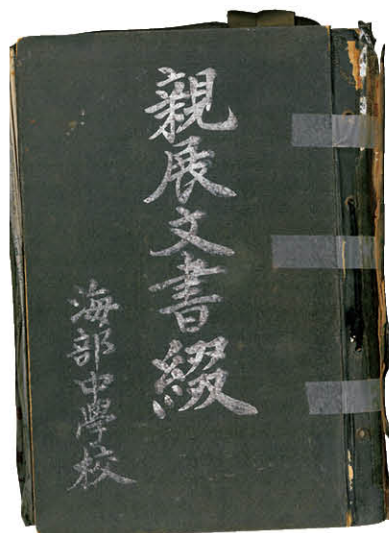 親展文書綴
海部中學校